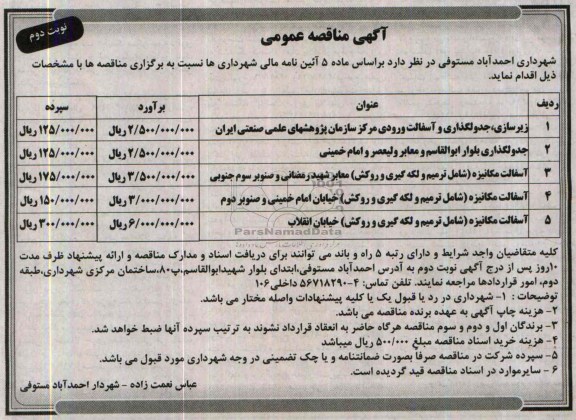 نوبت دوم
آگهی مناقصه عمومی
شهرداری احمدآباد مستوفی در نظر دارد براساس ماده ۵ آئین نامه مالی شهرداری ها نسبت به برگزاری مناقصه ها با مشخصات
ذیل اقدام نماید.
ردیف عنوان برآورد سپرده
۱ زیرسازی،جدولگذاری و آسفالت ورودی مرکز سازمان پژوهشهای علمی صنعتی ایران ۲/۵۰۰/۰۰۰/۰۰۰ ریال ۱۲۵/۰۰۰/۰۰۰ ریال
۲ جدولگذاری بلوار ابوالقاسم و معابر ولیعصر و امام خمینی ۲/۵۰۰/۰۰۰/۰۰۰ ریال ۱۲۵/۰۰۰/۰۰۰ ریال
۳ آسفالت مکانیزه (شامل ترمیم و لکه گیری و روکش) معابر شهید رمضانی و صنوبر سوم جنوبی ۳/۵۰۰/۰۰۰/۰۰۰ ریال ۱۷۵/۰۰۰/۰۰۰ ریال
۴ آسفالت مکانیزه (شامل ترمیم و لکه گیری و روکش) خیابان امام خمینی و صنوبر دوم ۳/۰۰۰/۰۰۰/۰۰۰ ریال ۱۵۰/۰۰۰/۰۰۰ ریال
۵ آسفالت مکانیزه (شامل ترمیم و لکه گیری و روکش) خیابان انقلاب ۶/۰۰۰/۰۰۰/۰۰۰ ریال ۳۰۰/۰۰۰/۰۰۰ ریال
ParsNamadData
کلیه متقاضیان واجد شرایط و دارای رتبه ۵ راه و باند می توانند برای دریافت اسناد و مدارک مناقصه و ارائه پیشنهاد ظرف مدت
۱۰روز پس از درج آگهی نوبت دوم به آدرس احمدآباد مستوفی،ابتدای بلوار شهیدابوالقاسم،پ۸۰،ساختمان مرکزی شهرداری،طبقه
دوم، امور قراردادها مراجعه نمایند. تلفن تماس: ۴-۵۶۷۱۸۲۹۰ داخلی ۱۰۶
توضیحات : ۱- شهرداری در رد یا قبول یک یا کلیه پیشنهادات واصله مختار می باشد.
۲- هزینه چاپ آگهی به عهده برنده مناقصه می باشد.
۳- برندگان اول و دوم و سوم مناقصه هرگاه حاضر به انعقاد قرارداد نشوند به ترتیب سپرده آنها ضبط خواهد شد.
۴- هزینه خرید اسناد مناقصه مبلغ ۵۰۰/۰۰۰ ریال میباشد
۵- سپرده شرکت در مناقصه صرفاً بصورت ضمانتنامه و یا چک تضمینی در وجه شهرداری مورد قبول می باشد.
۶ - سایرموارد در اسناد مناقصه قید گردیده است.
عباس نعمت زاده - شهردار احمدآباد مستوفی